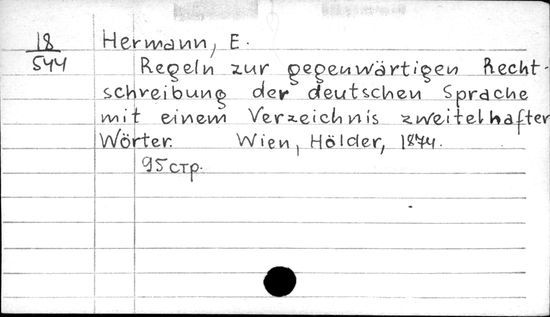 18/544 Hermann, E.
Regeln zur gegenwärtigen Recht-
schreibung der deutschen Sprache
mit einem Verzeichnis zweitelhafter
Wörter. Wien, Hölder, 1874.
95 стр.